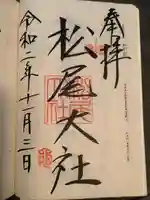 奉拝
松尾大社
令和二年十一月三日